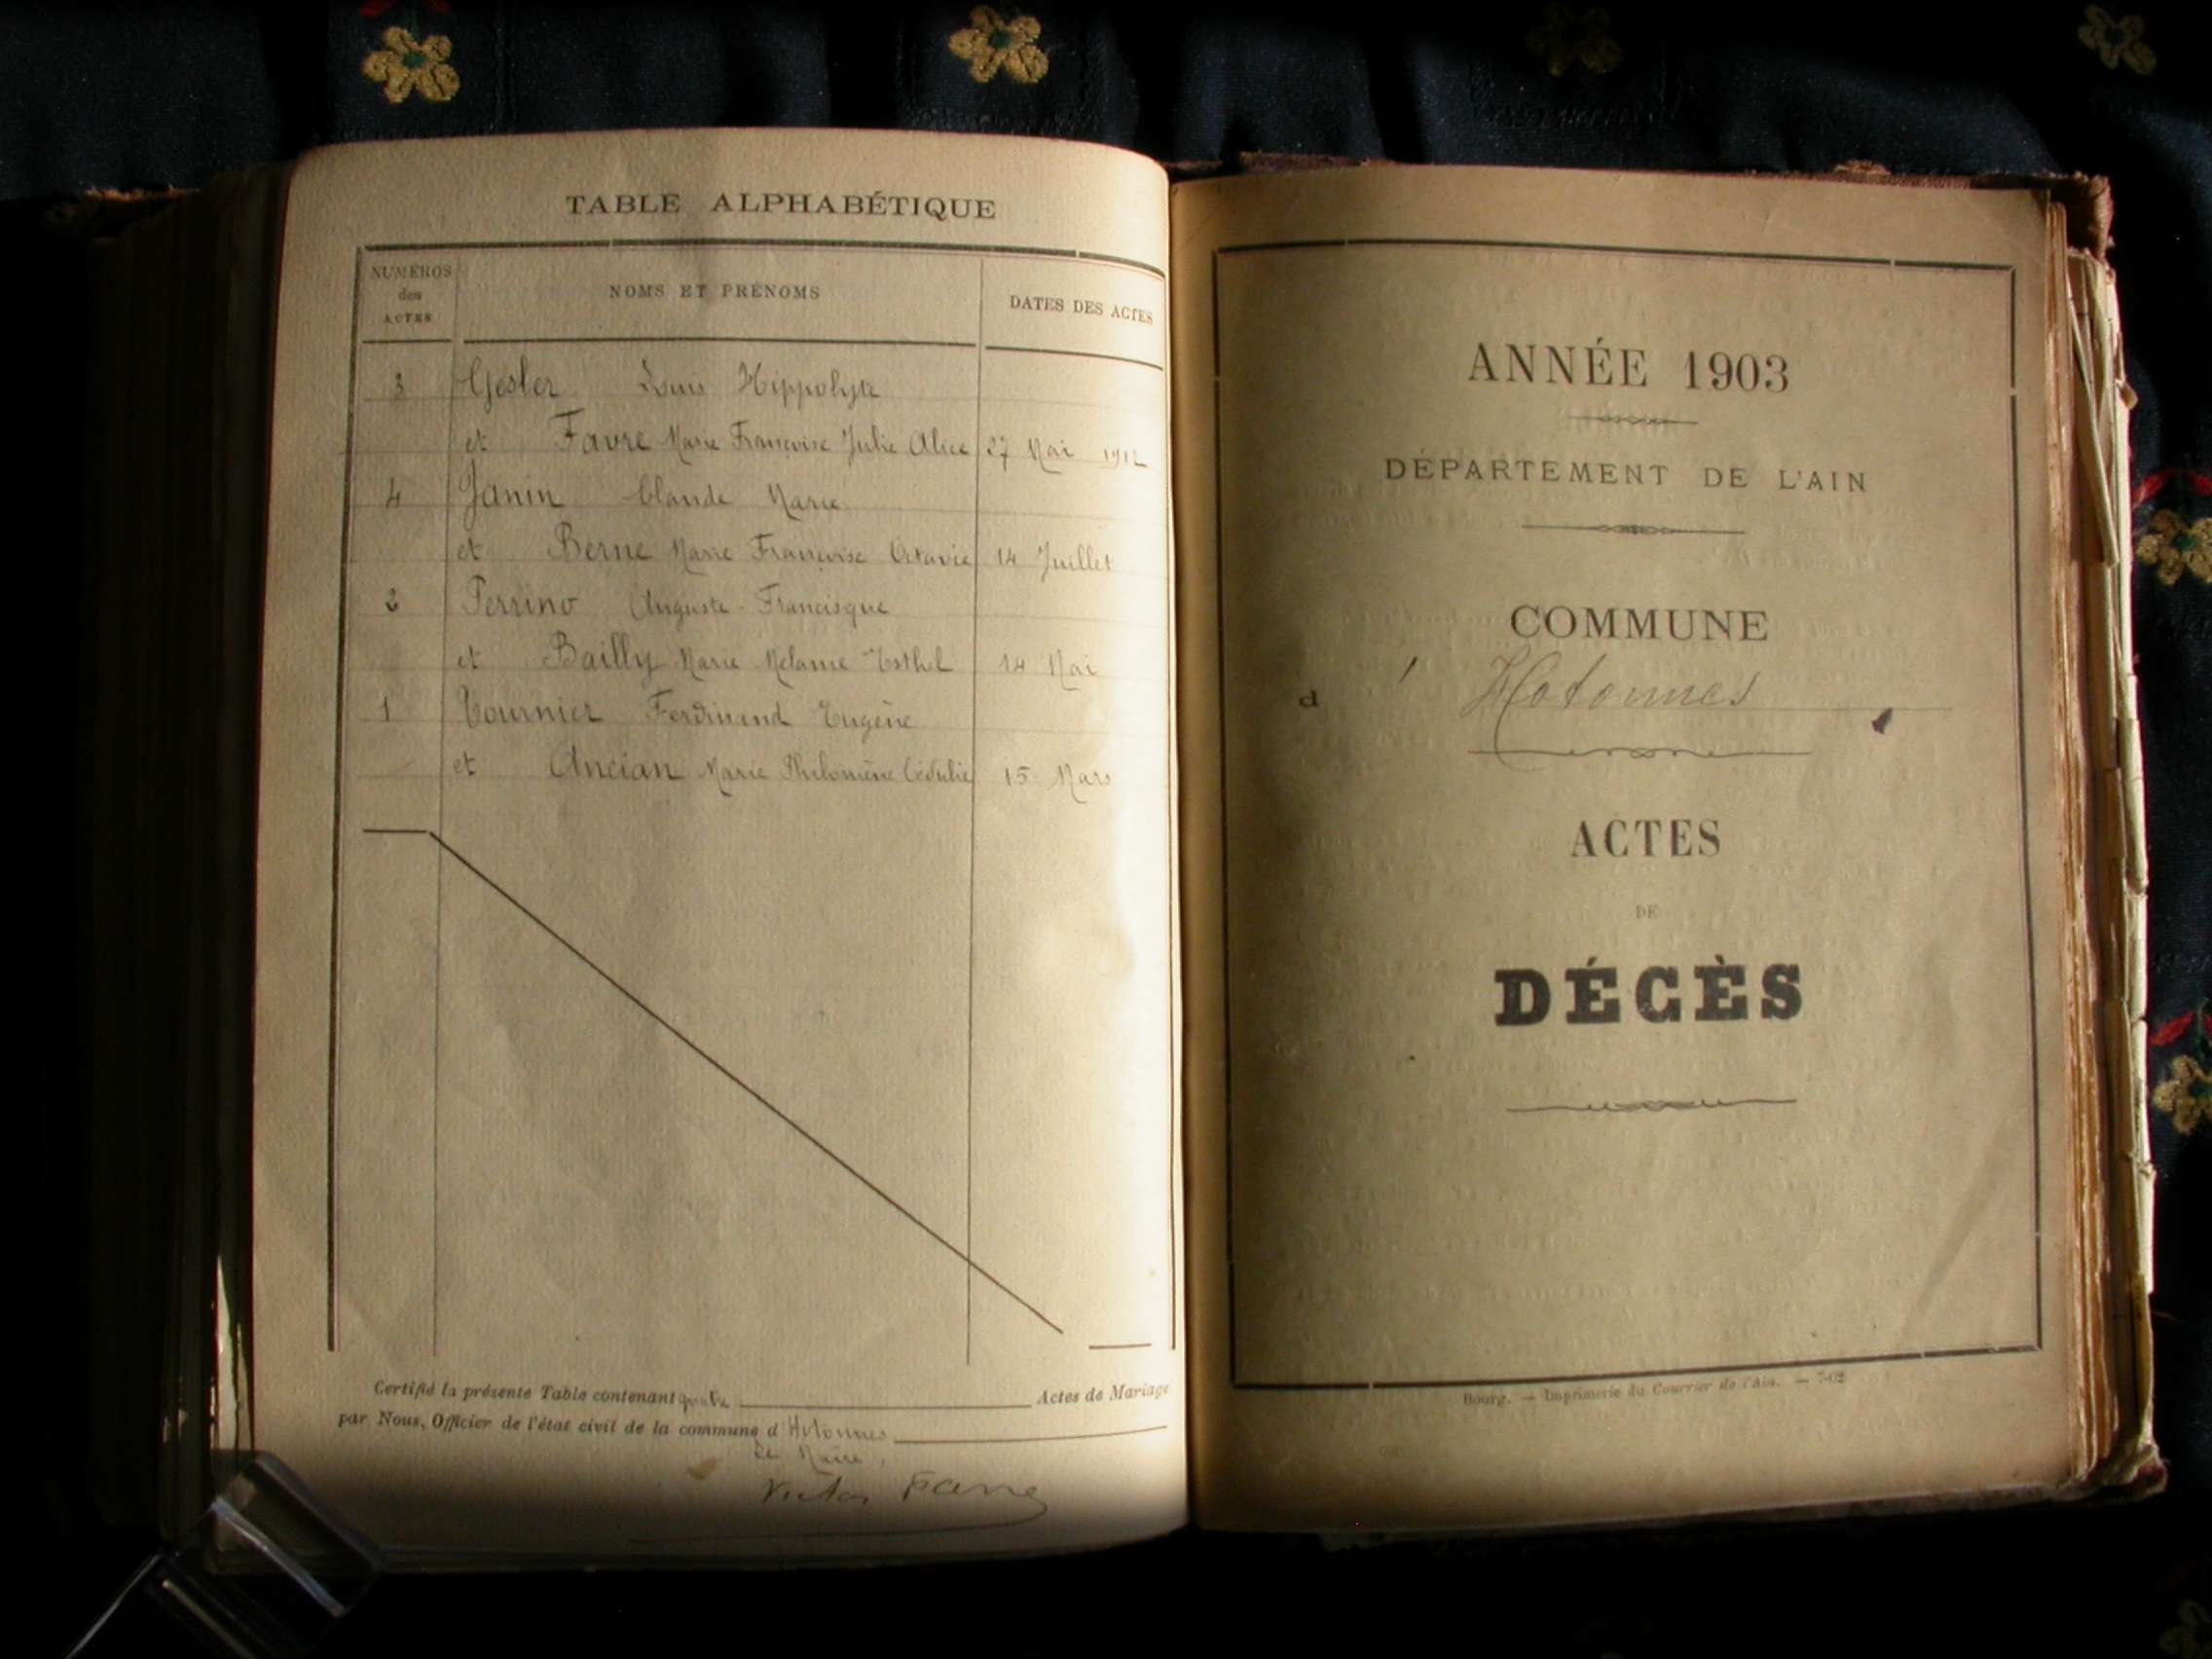 TABLE ALPHABÉTIQUE
NUMÉROS
des
ACTES
NOMS ET PRÉNOMS
DATES DES ACTES
3 Gesler Louis Hippolyte
et Favre Marie Françoise Julie Alice 27 Mai 1912
4 Janin Claude Marie
et Berne Marie Françoise Octavie 14 Juillet
2 Perrino Auguste Francisque
et Bailly Marie Mélanie Esthel 14 Mai
1 Tournier Ferdinand Eugène
et Ancian Marie Philomène Cédulie 15 Mars
Certifié la présente Table contenant quatre Actes de Mariage
par Nous, Officier de l'état civil de la commune d'Hotonnes
Le Maire,
Victor Favre
ANNÉE 1903
DÉPARTEMENT DE L'AIN
COMMUNE
d' Hotonnes
ACTES
DE
DÉCÈS
Bourg. — Imprimerie du Courrier de l'Ain. — 7-02